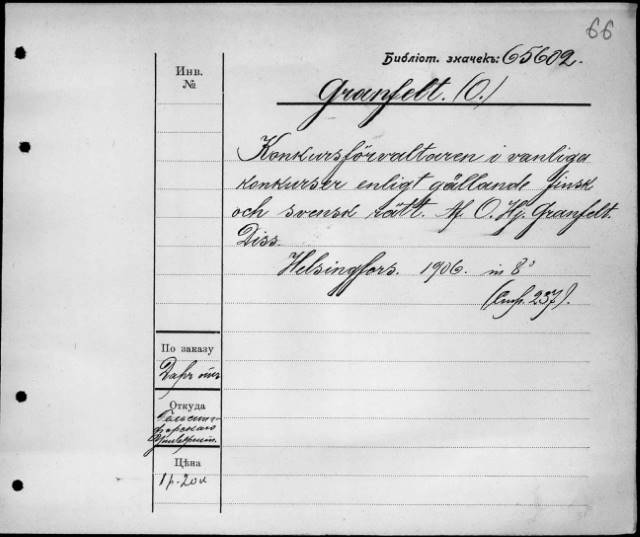 66
Библіот. значекъ: 65602.
Инв.
№
Granfelt. (O.)
Konkursförvaltaren i vanliga
konkurser enligt gällande finsk
och svensk rätt. Af O. Hj. Granfelt.
Diss.
Helsingfors. 1906. in 8°
(стр. 237).
По заказу
Даръ отъ
Откуда
Гельсинг-
форскаго
Университ.
Цѣна
1 р. 20 к